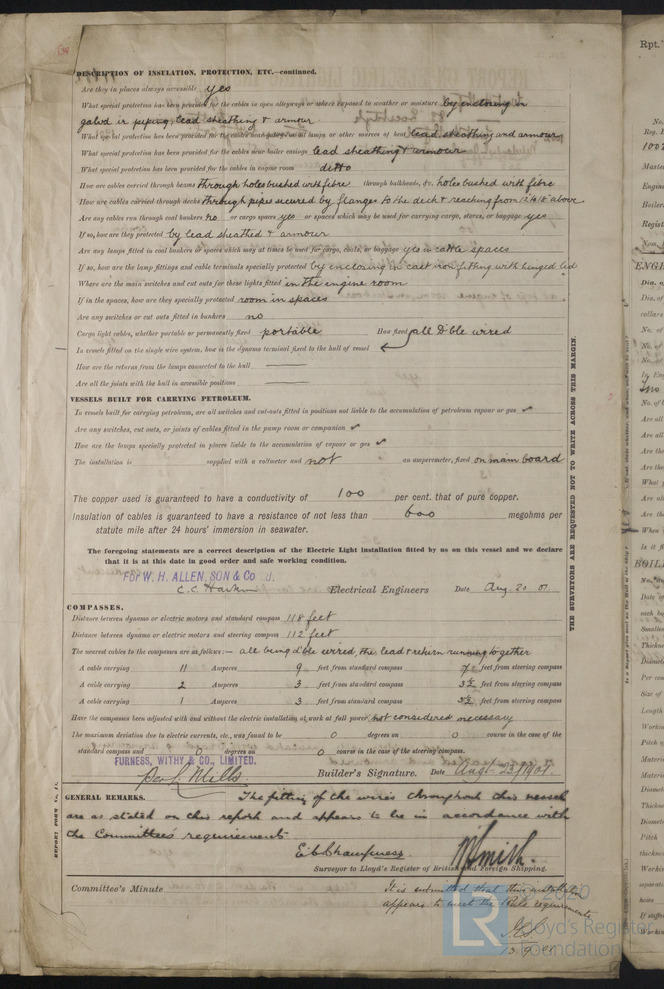 DESCRIPTION OF INSULATION, PROTECTION, ETC.—continued.
Are they in places always accessible yes
What special protection has been provided for the cables in open alleyways or where exposed to weather or moisture by enclosing in
galvd ir piping, lead sheathing & armour
What special protection has been provided for the cables near galleys or oil lamps or other sources of heat lead sheathing and armour
What special protection has been provided for the cables near boiler casings lead sheathing & armour
What special protection has been provided for the cables in engine room ditto
How are cables carried through beams through holes bushed with fibre through bulkheads, &c. holes bushed with fibre
How are cables carried through decks through pipes secured by flanges to the deck & reaching from 12 to 18 above
Are any cables run through coal bunkers no or cargo spaces yes or spaces which may be used for carrying cargo, stores, or baggage yes
If so, how are they protected by lead sheathed & armour
Are any lamps fitted in coal bunkers or spaces which may at times be used for cargo, coals, or baggage yes in cattle spaces
If so, how are the lamp fittings and cable terminals specially protected by enclosing in cast iron fitting with hinged lid
Where are the main switches and cut outs for these lights fitted in the engine room
If in the spaces, how are they specially protected room in spaces
Are any switches or cut outs fitted in bunkers no
Cargo light cables, whether portable or permanently fixed portable How fixed all Dble wired
In vessels fitted on the single wire system, how is the dynamo terminal fixed to the hull of vessel
How are the returns from the lamps connected to the hull
Are all the joints with the hull in accessible positions
VESSELS BUILT FOR CARRYING PETROLEUM.
In vessels built for carrying petroleum, are all switches and cut-outs fitted in positions not liable to the accumulation of petroleum vapour or gas ✓
Are any switches, cut outs, or joints of cables fitted in the pump room or companion ✓
How are the lamps specially protected in places liable to the accumulation of vapour or gas ✓
The installation is supplied with a voltmeter and not an amperemeter, fixed on main board
The copper used is guaranteed to have a conductivity of 100 per cent. that of pure copper.
Insulation of cables is guaranteed to have a resistance of not less than 600 megohms per
statute mile after 24 hours' immersion in seawater.
The foregoing statements are a correct description of the Electric Light installation fitted by us on this vessel and we declare
that it is at this date in good order and safe working condition.
For W. H. ALLEN, SON & Co
Electrical Engineers Date Aug. 20 01
COMPASSES.
Distance between dynamo or electric motors and standard compass 118 feet
Distance between dynamo or electric motors and steering compass 112 feet
The nearest cables to the compasses are as follows:— all being dble wired, the lead & return running together
A cable carrying 11 Amperes 9 feet from standard compass feet from steering compass
A cable carrying 2 Amperes 3 feet from standard compass 3½ feet from steering compass
A cable carrying 1 Amperes 3 feet from standard compass 3½ feet from steering compass
Have the compasses been adjusted with and without the electric installation at work at full power not considered necessary
The maximum deviation due to electric currents, etc., was found to be 0 degrees on 0 course in the case of the
standard compass and 0 degrees on 0 course in the case of the steering compass.
FURNESS, WITHY & CO., LIMITED.
Mills Builder's Signature. Date Augt. 23/1901.
GENERAL REMARKS. The fitting of the wires throughout this vessel
are as stated on this report and appears to be in accordance with
the Committee's requirements
Surveyor to Lloyd's Register of British and Foreign Shipping.
Committee's Minute It is submitted that this installation
appears to meet the Rule requirements
THE SURVEYORS ARE REQUESTED NOT TO WRITE ACROSS THIS MARGIN.
© 2020
LR
Lloyd's Register
Foundation